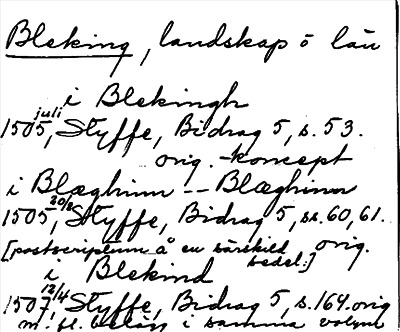 Bleking, landskap o län
i Blekingh
juli
1505, Styffe, Bidrag 5, s. 53.
orig.-koncept
i Blæghinn -- Blæghinn
20/8
1505, Styffe, Bidrag 5, ss. 60, 61.
[postscriptum å en särskild sedel:] orig.
i Blekind
12/4
1507, Styffe, Bidrag 5, s. 164. orig
m. fl. belägg i samma volym